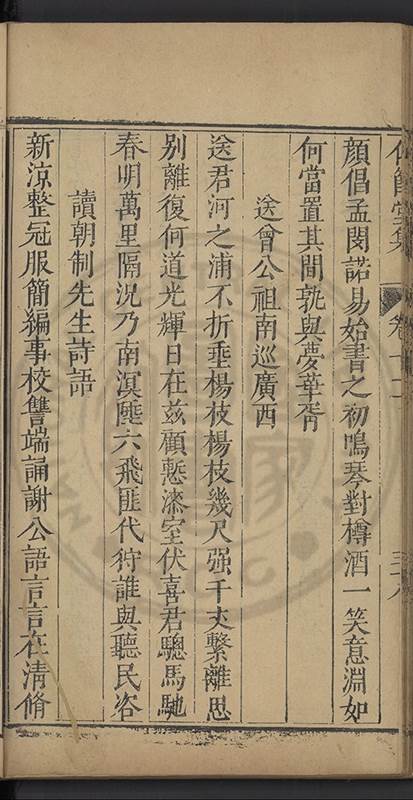 仰節堂集 卷十二 三十八
顏倡孟閔諾易始書之初鳴琴對樽酒一笑意淵如
何當置其間孰與夢華胥
送曾公祖南巡廣西
送君河之浦不折垂楊枝楊枝幾尺强千丈繫離思
别離復何道光輝日在兹顧慙漆室伏喜君驄馬馳
春明萬里隔況乃南溟陲六飛匪代狩誰與聽民咨
讀朝制先生詩語
新涼整冠服簡編事校讐端誦謝公語言言在清脩